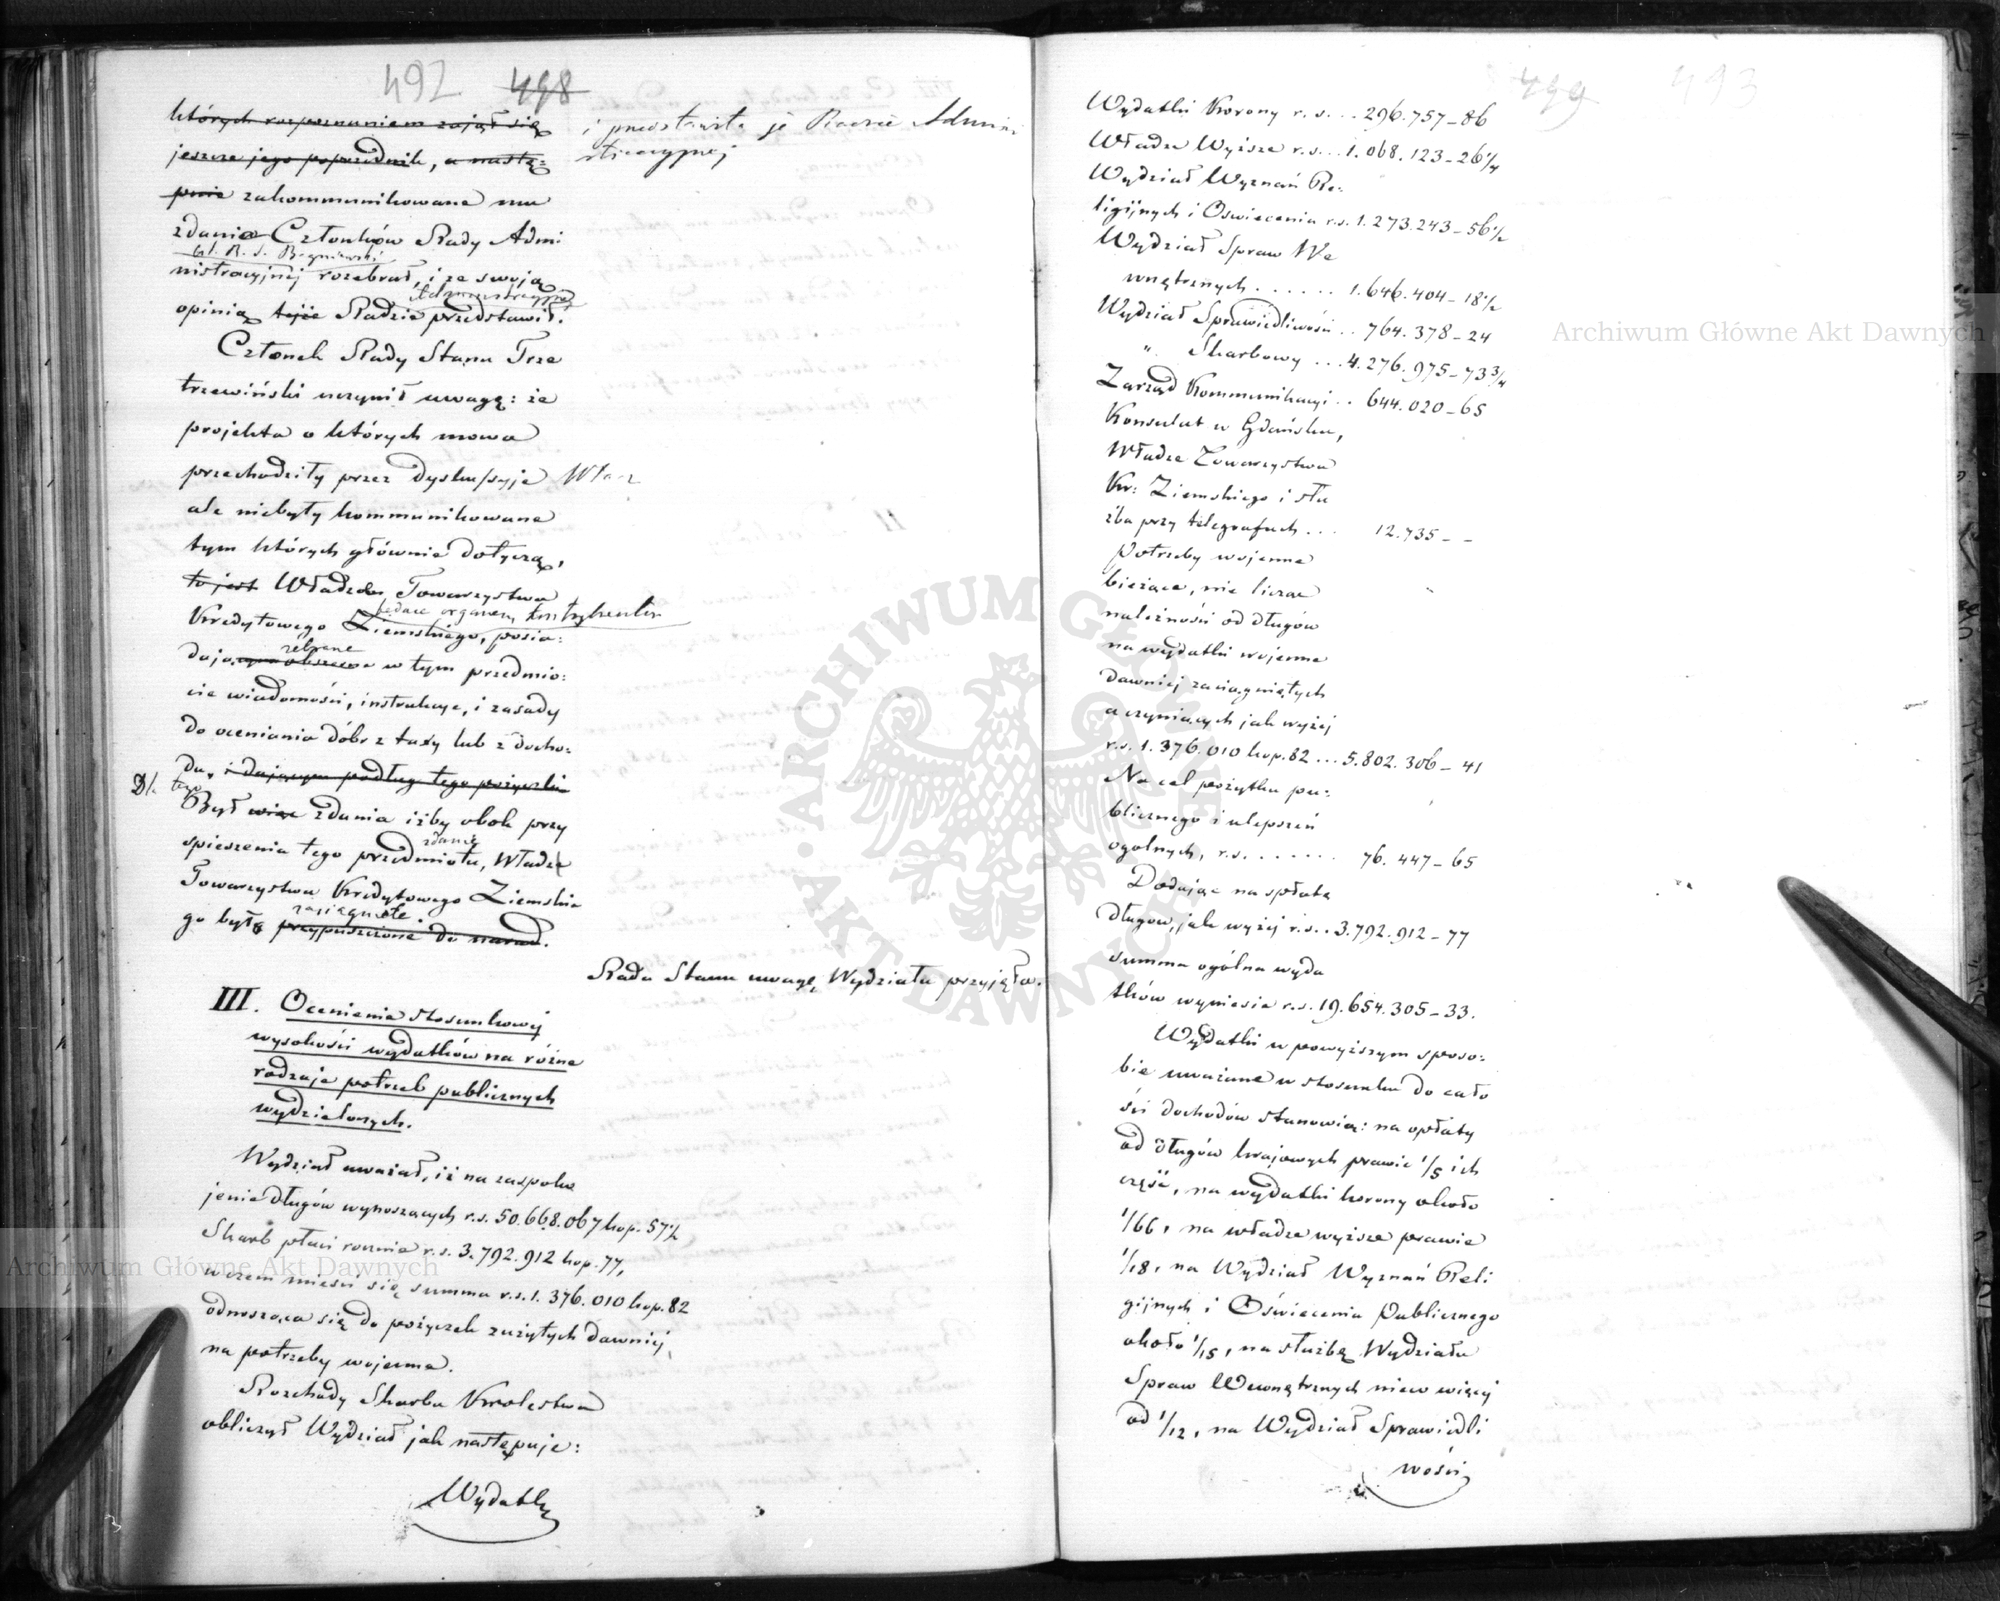 492 498
których rozpoznaniem zajął się
jeszcze jego poprzednik, a nastę=
pnie zakommunikowane mu
zdanie Członków Rady Admi
nistracyjnej rozebrał, i ze swoją
Administracyjnej
opinią tejże Radzie przedstawił.
i przedstawił je Radzie Admini
stracyjnej
Członek Rady Stanu Trze
trzewiński uczynił uwagę: że
projekta o których mowa
przechodziły przez dyskussyje
ale niebyły kommunikowane
tym których głównie dotyczą,
to jest Władzom Towarzystwa
będące organem
Kredytowego Ziemskiego, posia=
zebrane
w tym przedmio=
cie wiadomości, instrukcje, i zasady
do oceniania dóbr z taxy lub z docho=
du, i dającym podług tego pożyczki
Był więc zdania iżby obok przy
spieszenia tego przedmiotu, Władze
zdanie
Towarzystwa Kredytowego Ziemskie
zasiągnięte.
go były przypuszczone do narad.
Rada Stanu uwagę Wydziału przyjęła.
III. Ocenienie stosunkowej
wysokości wydatków na różne
rodzaje potrzeb publicznych
wydzielonych.
Wydział uważał, iż na zaspoko
jenie długów wynoszących r.s. 50.668.067 kop. 57½
Skarb płaci rocznie r.s. 3.792.912 kop. 77,
w czem mieści się summa r.s. 1.376.010 kop. 82
odnosząca się do pożyczek zużytych dawniej,
na potrzeby wojenne.
Rozchody Skarbu Królestwa
obliczył Wydział jak następuje:
Wydatki
499 493
Wydatki Korony r.s. .. 296.757-86
Władze Wyższe r.s. .. 1.068.123-26¼
Wydział Wyznań Re=
ligijnych i Oświecenia r.s. 1.273.243-56½
Wydział Spraw We
wnętrznych ...... 1.646.404-18½
Wydział Sprawiedliwości .. 764.378-24
" Skarbowy ... 4.276.975-73¾
Zarząd Kommunikacyi .. 644.020-65
Konsulat w Gdańsku,
Władze Towarzystwa
Kr: Ziemskiego i słu
żba przy telegrafach ... 12.735 - -
Potrzeby wojenne
bieżące, nie licząc
należności od długów
na wydatki wojenne
dawniej zaciągniętych
a czyniących jak wyżej
r.s. 1.376.010 kop. 82 ... 5.802.306-41
Na cel pożytku pu=
blicznego i ulepszeń
ogólnych, r.s. ....... 76.447-65
Dodając na spłatę
długów, jak wyżej r.s. .. 3.792.912-77
summa ogólna wyda
tków wyniesie r.s. 19.654.305-33.
Wydatki w powyższym sposo=
bie uważane w stosunku do cało
ści dochodów stanowią: na opłaty
od długów krajowych prawie 1/5 ich
część, na wydatki korony około
1/66, na władze wyższe prawie
1/18, na Wydział Wyznań Reli
gijnych i Oświecenia Publicznego
około 1/15, na służbę Wydziału
Spraw Wewnętrznych nieco więcej
od 1/12, na Wydział Sprawiedli
wości
Archiwum Główne Akt Dawnych
Archiwum Główne Akt Dawnych
ARCHIWUM GŁÓWNE AKT DAWNYCH